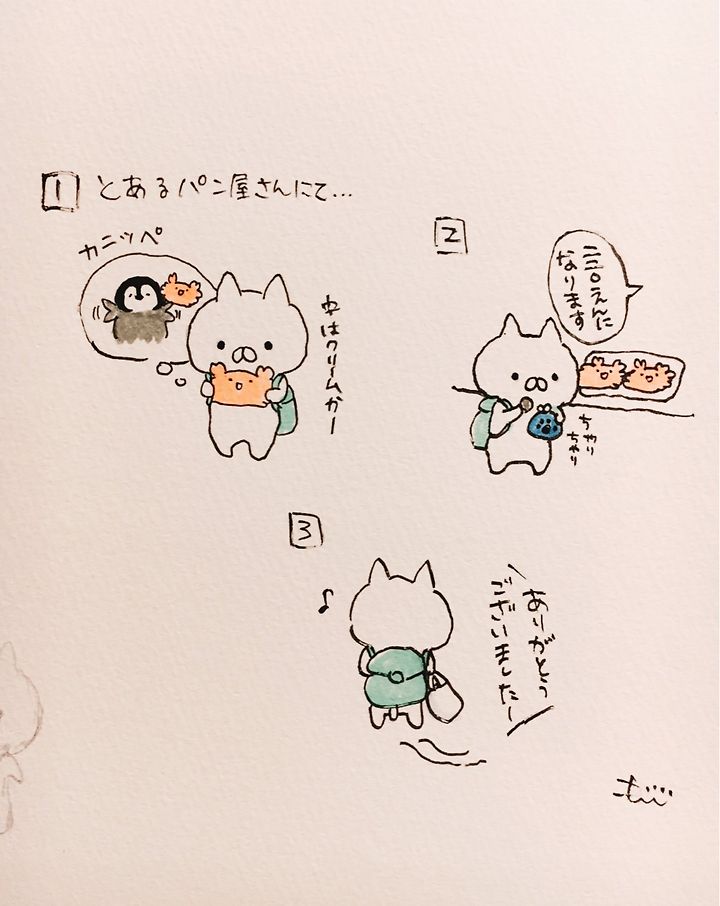 1 とあるパン屋さんにて…
カニッペ
中はクリームかー
2
二三〇えんに
なります
ちゃり
ちゃり
3
♪
ありがとう
ございましたー